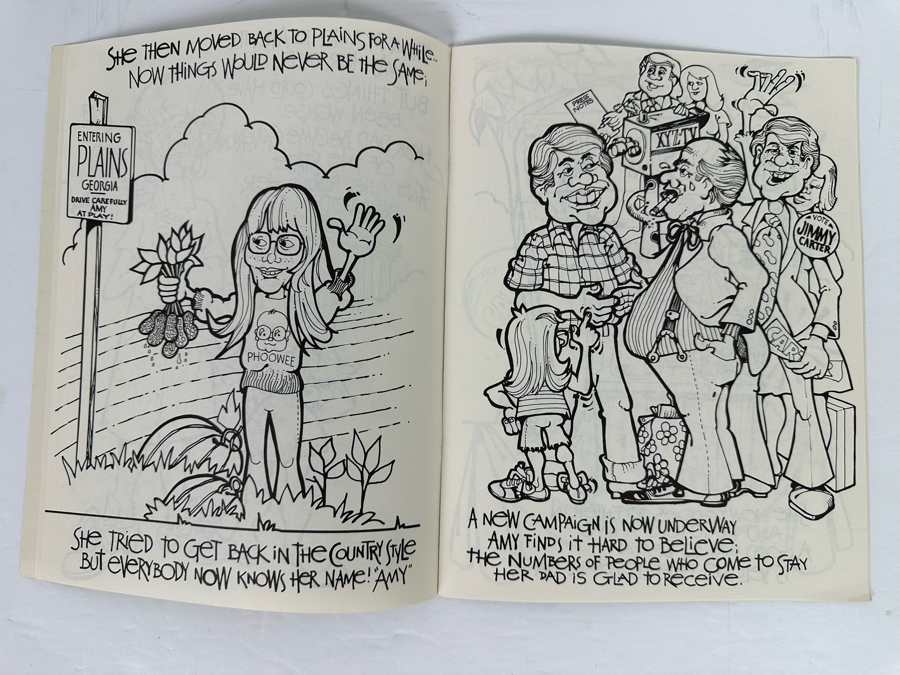 SHE THEN MOVED BACK TO PLAINS FOR A WHILE...
NOW THINGS WOULD NEVER BE THE SAME;
ENTERING
PLAINS
GEORGIA
DRIVE CAREFULLY
AMY
AT PLAY!
PHOOWEE
SHE TRIED TO GET BACK IN THE COUNTRY STYLE
BUT EVERYBODY NOW KNOWS HER NAME! "AMY"
PRESS
NOTES
XYZ-TV
VOTE
JIMMY
CARTER
A NEW CAMPAIGN IS NOW UNDERWAY
AMY FINDS IT HARD TO BELIEVE;
THE NUMBERS OF PEOPLE WHO COME TO STAY
HER DAD IS GLAD TO RECEIVE.